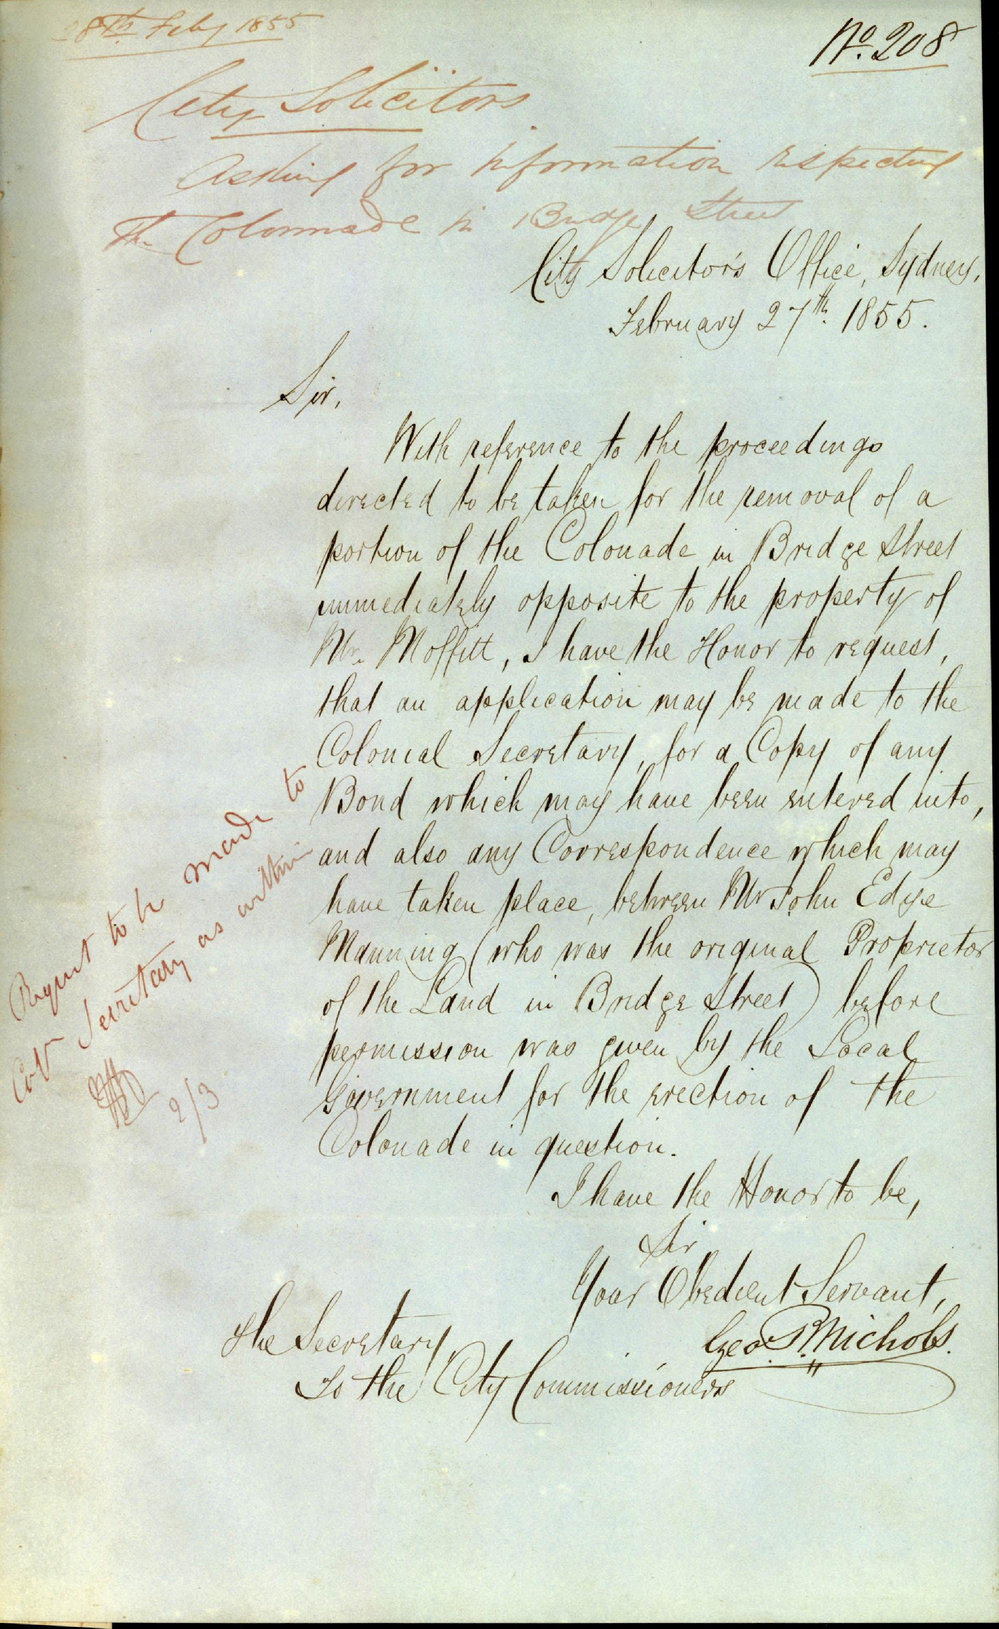 28th Feby 1855
No. 208
City Solicitors
Asking for information respecting
the Colonnade in Bridge Street
City Solicitor's Office, Sydney,
February 27th 1855.
Sir,
With reference to the proceedings
directed to be taken for the removal of a
portion of the Colonade in Bridge Street
immediately opposite to the property of
Mr. Moffitt, I have the Honor to request,
that an application may be made to the
Colonial Secretary, for a Copy of any
Bond which may have been entered into,
and also any Correspondence which may
have taken place, between Mr John Edye
Manning (who was the original Proprietor
of the Land in Bridge Street) before
permission was given by the Local
Government for the erection of the
Colonade in question.
I have the Honor to be,
Sir
Your Obedient Servant,
Geo. R. Nichols.
The Secretary
To the City Commissioners
Request to be made to
Col Secretary as within
2/3